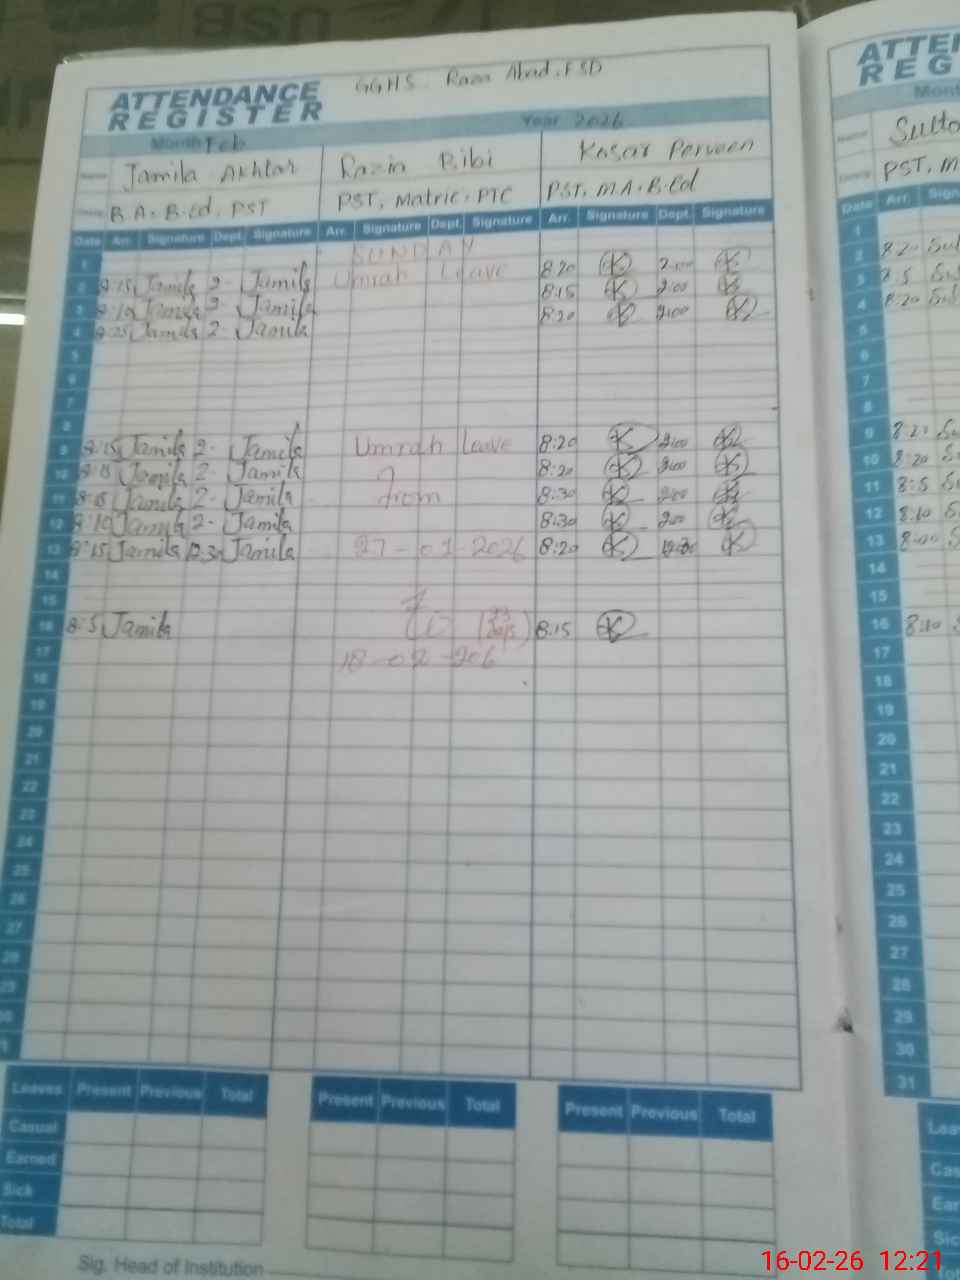 GGHS. Raza Abad. FSD
ATTENDANCE
REGISTER
Month Feb Year 2026
Name Jamila Akhtar Razia Bibi Kosar Perveen
B.A. B.Ed. PST PST, Matric. PTC PST, M.A. B.Ed
Date Arr. Signature Dept. Signature Arr. Signature Dept. Signature Arr. Signature Dept. Signature
1 SUNDAY
2 8:15 Jamila 2- Jamila Umrah Leave 8:20 K 2:00 K
3 8:10 Jamila 2- Jamila 8:15 K 2:00 K
4 8:25 Jamila 2- Jamila 8:20 K 2:00 K
5
6
7
8
9 8:15 Jamila 2- Jamila Umrah Leave 8:20 K 2:00 K
10 Jamila 2- Jamila 8:20 K 2:00 K
11 Jamila 2- Jamila from 8:30 K 2:00 K
12 8:10 Jamila 2- Jamila 8:30 K 200 K
13 8:15 Jamila 12:30 Jamila 27-01-2026 8:20 K 12:30 K
14
15
16 8:5 Jamila 8:15 K
17 18-02-206
18
19
20
21
22
23
24
25
26
27
28
29
Leaves Present Previous Total Present Previous Total Present Previous Total
Casual
Earned
Sick
Total
Sig. Head of Institution
ATTEN
REG
Mont
Name Sulto
PST, M
Date Arr. Sign
1
2 8:20 Sul
3 8:5 Sul
4 8:20 Sul
5
6
7
8
9 8:20 Su
10 8:20 Su
11 8:5 Su
12 8:10 S
13 S
14
15
16 8:10 S
17
18
19
20
21
22
23
24
25
26
27
28
29
30
31
Lea
Cas
Ear
Sic
16-02-26 12:21